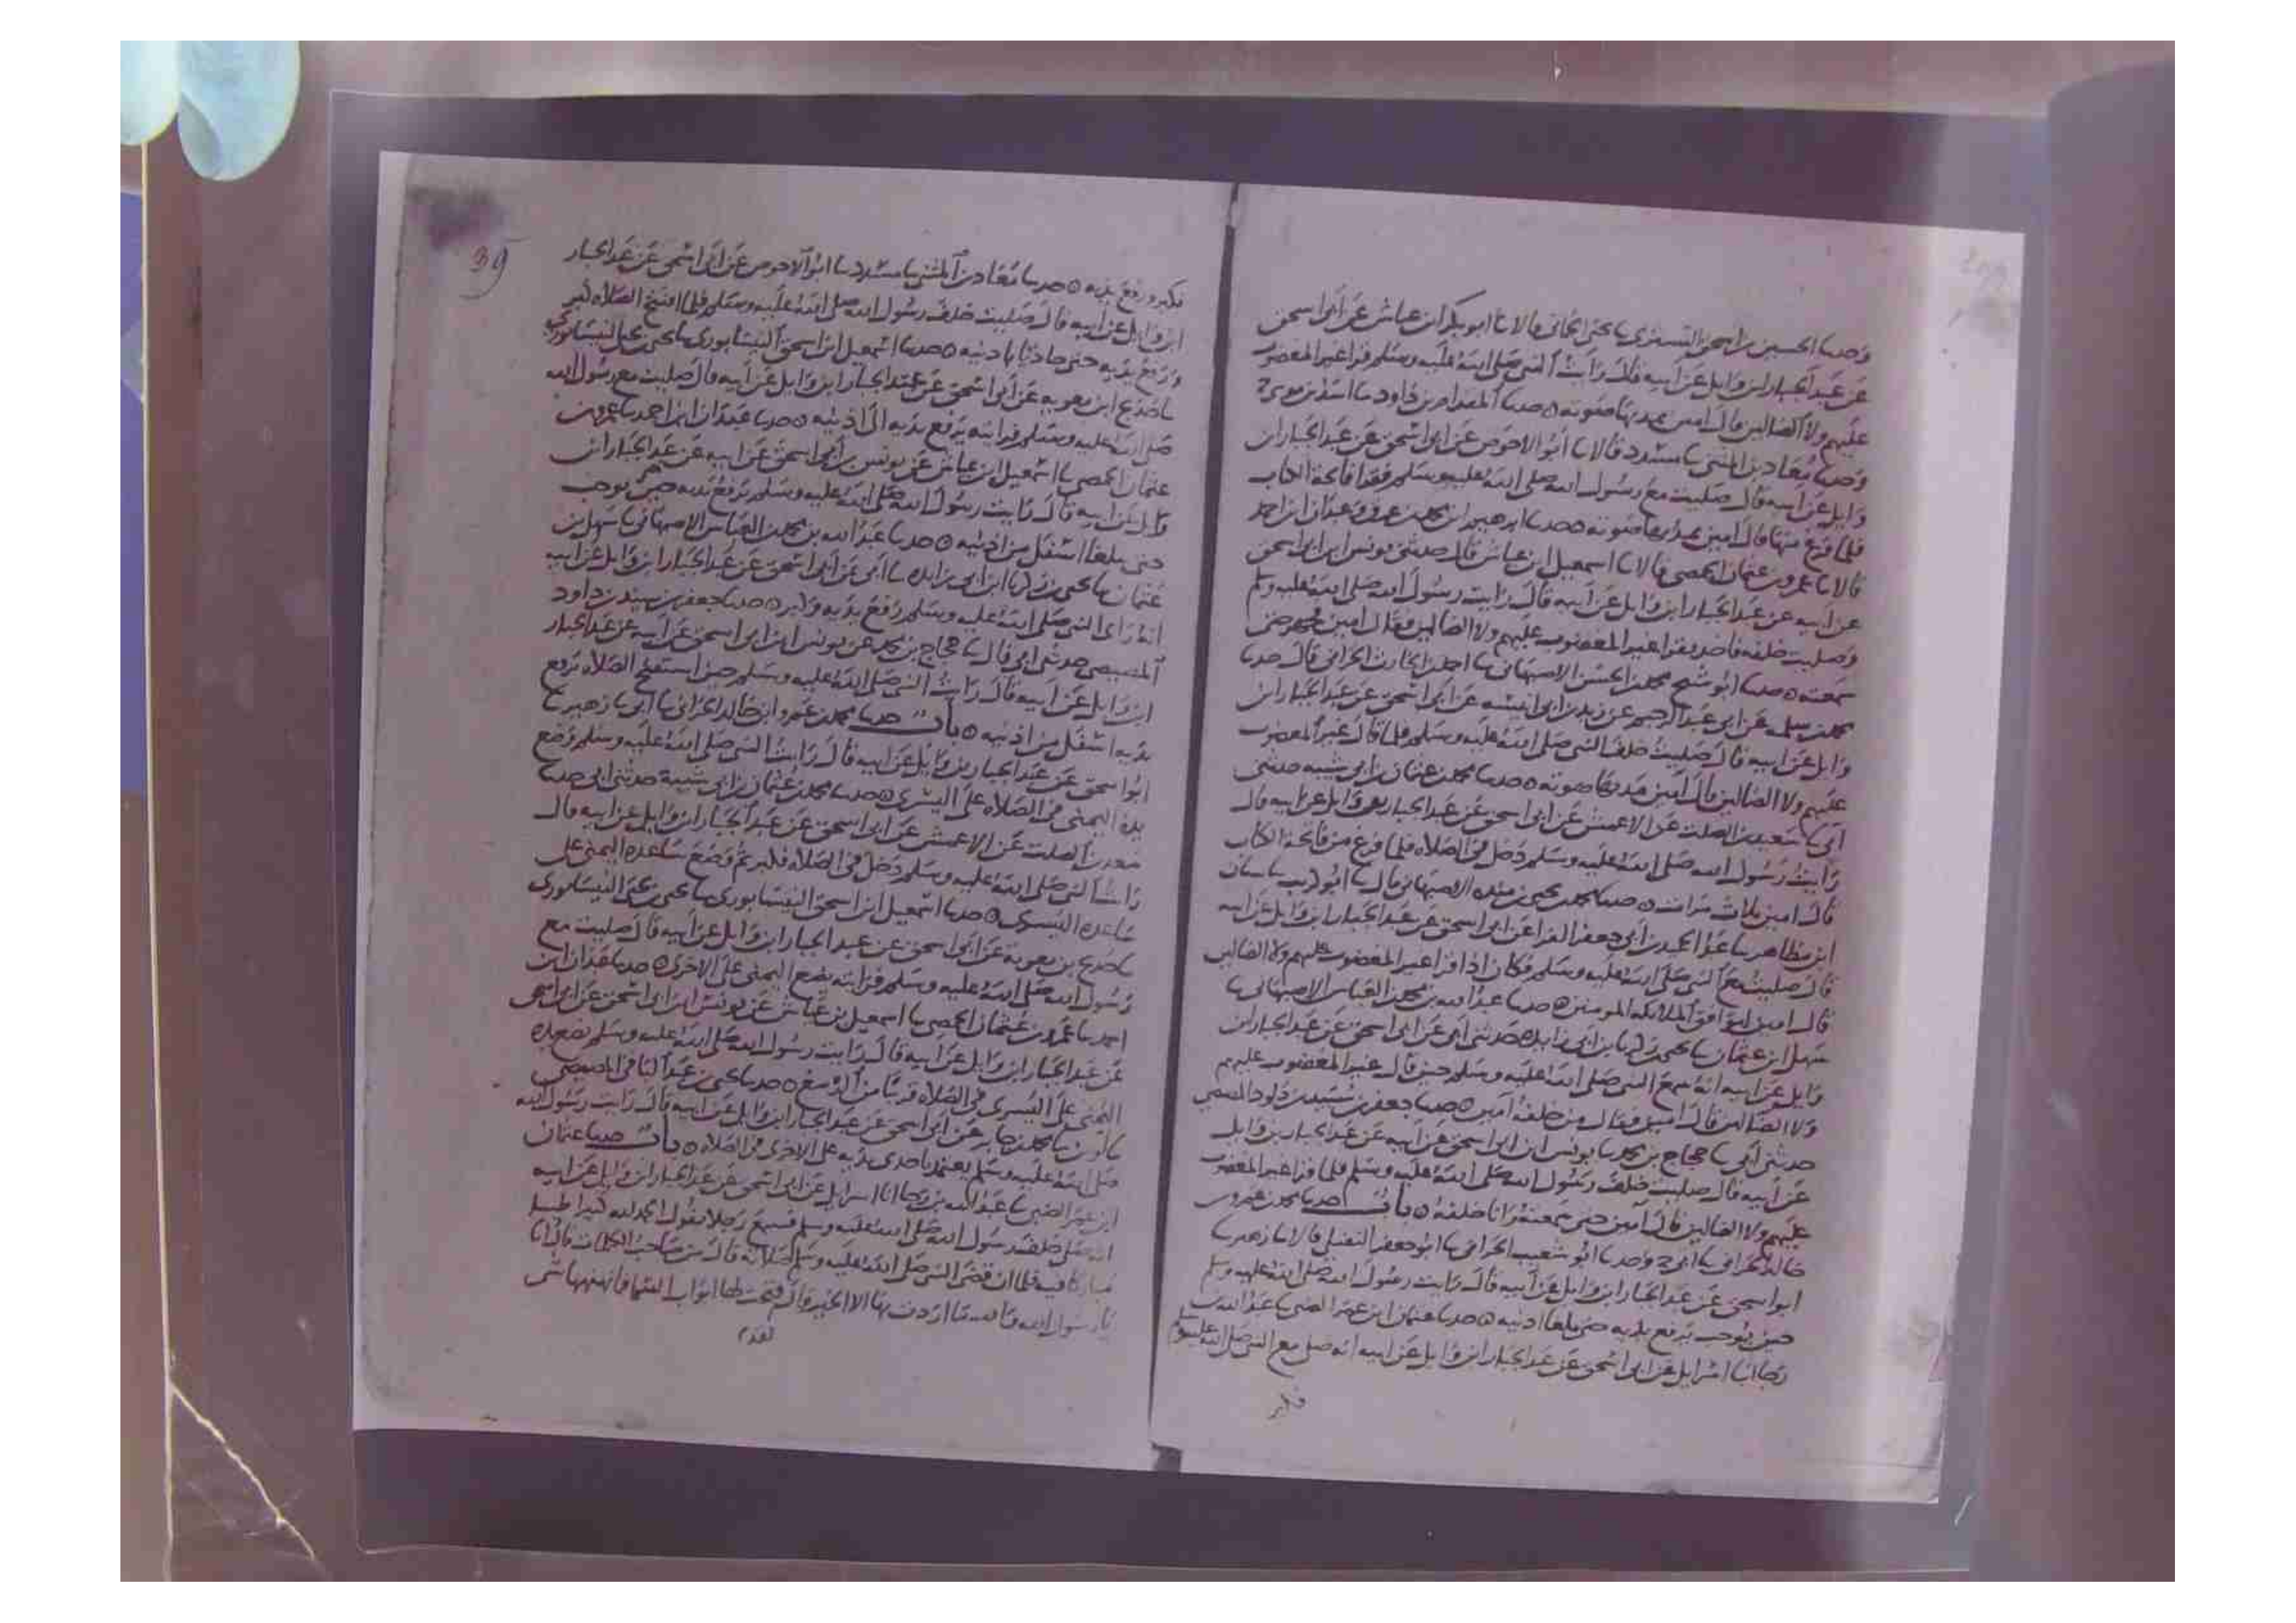 وحدثنا الحسين بن اسحق التستري نا يحيى الحماني قالا نا ابو بكر ابن عياش عن ابي اسحق
عن عبد الجبار ابن وايل عن ابيه قال رايت النبي صلى الله عليه وسلم قرا غير المغضوب
عليهم ولا الضالين قال امين يمد بها صوته ه حدثنا المقدام بن داود نا اسد بن موسى ح
وحدثنا معاد بن المثنى نا مسدد قالا نا ابو الاحوص عن ابي اسحق عن عبد الجبار ابن
وايل عن ابيه قال صليت مع رسول الله صلى الله عليه وسلم فقرا فاتحة الكتاب
فلما فرغ منها قال امين يمد بها صوته ه حدثنا ابرهيم ابن محمد بن عرق وعبدان ابن احمد
قالا نا عمرو بن عثمان الحمصي قالا نا اسمعيل ابن عياش قال حدثني يونس ابن ابي اسحق
عن ابيه عن عبد الجبار ابن وايل عن ابيه قال رايت رسول الله صلى الله عليه وسلم
وصليت خلفه فقرا غير المغضوب عليهم ولا الضالين فقال امين فجهر حتى
سمعته ه حدثنا ابو شيخ محمد بن الحسن الاصبهاني نا احمد بن الحارث الحراني قال حدثنا
محمد بن سلمه عن ابي عبد الرحيم عن زيد بن ابي انيسه عن ابي اسحق عن عبد الجبار ابن
وايل عن ابيه قال صليت خلف النبي صلى الله عليه وسلم فلما قال غير المغضوب
عليهم ولا الضالين قال امين مد بها صوته ه حدثنا محمد بن عثمان بن ابي شيبه حدثني
ابي نا سعيد بن الصلت عن الاعمش عن ابي اسحق عن عبد الجبار بن وايل عن ابيه قال
رايت رسول الله صلى الله عليه وسلم دخل في الصلاه فلما فرغ من فاتحة الكتاب
قال امين ثلاث مرات ه حدثنا محمد بن يحيى بن منده الاصبهاني قال نا ابو كريب نا سنان
ابن مظاهر نا عبد الحميد بن ابي جعفر الفرا عن ابي اسحق عن عبد الجبار ابن وايل عن ابيه
قال صليت مع النبي صلى الله عليه وسلم فكان اذا قرا غير المغضوب عليهم ولا الضالين
قال امين المومنين ه حدثنا عبد الله بن محمد بن العباس الاصبهاني نا
سهل ابن عثمان نا يحيى بن زكريا بن ابي زايده حدثني ابي عن ابي اسحق عن عبد الجبار ابن
وايل عن ابيه انه سمع النبي صلى الله عليه وسلم حين قال غير المغضوب عليهم
ولا الضالين قال امين وقال من خلفه امين ه حدثنا جعفر بن سنيد بن داود المصيصي
حدثني ابي نا حجاج بن محمد نا يونس ابن ابي اسحق عن ابيه عن عبد الجبار بن وايل
عن ابيه قال صليت خلف رسول الله صلى الله عليه وسلم فلما قرا غير المغضوب
عليهم ولا الضالين قال امين حتى سمعته وانا خلفه ه باب حدثنا محمد بن عمرو بن
خالد الحراني نا ابي ح وحدثنا ابو شعيب الحراني نا ابو جعفر النفيلي قالا نا زهير نا
ابو اسحق عن عبد الجبار ابن وايل عن ابيه قال رايت رسول الله صلى الله عليه وسلم
حين يوجب يرفع يديه حتى بلغا اذنيه ه حدثنا عثمان ابن عمر الضبي نا عبد الله بن
رجا انا اسرايل عن ابي اسحق عن عبد الجبار ابن وايل عن ابيه انه صلى مع النبي صلى الله عليه وسلم
فكبر
39
فكبر ورفع يديه ه حدثنا معاد بن المثنى نا مسدد نا ابو الاحوص عن ابي اسحق عن عبد الجبار
ابن وايل عن ابيه قال صليت خلف رسول الله صلى الله عليه وسلم فلما افتتح الصلاه كبر
ورفع يديه حتى حاذتا باذنيه ه حدثنا اسمعيل ابن اسحق النيسابوري نا يحيى بن يحيى النيسابوري
نا حديج ابن معويه عن ابي اسحق عن عبد الجبار ابن وايل عن ابيه قال صليت مع رسول الله
صلى الله عليه وسلم فرايته يرفع يديه الى اذنيه ه حدثنا عبدان ابن احمد نا عمرو بن
عثمان الحمصي نا اسمعيل ابن عياش عن يونس بن ابي اسحق عن ابيه عن عبد الجبار ابن
وايل عن ابيه قال رايت رسول الله صلى الله عليه وسلم يرفع يديه حين يوجب
حتى بلغا اسفل من اذنيه ه حدثنا عبد الله بن محمد بن العباس الاصبهاني نا سهل بن
عثمان نا يحيى بن زكريا ابن ابي زايده نا ابي عن ابي اسحق عن عبد الجبار ابن وايل عن ابيه
انه راى النبي صلى الله عليه وسلم رفع يديه وكبر ه حدثنا جعفر بن سنيد بن داود
المصيصي حدثني ابي قال نا حجاج بن محمد عن يونس ابن ابي اسحق عن ابيه عن عبد الجبار
ابن وايل عن ابيه قال رايت النبي صلى الله عليه وسلم حين استفتح الصلاه يرفع
يديه اسفل من اذنيه ه باب حدثنا محمد بن عمرو ابن خالد الحراني نا ابي نا زهير نا
ابو اسحق عن عبد الجبار بن وايل عن ابيه قال رايت النبي صلى الله عليه وسلم وضع
يده اليمنى في الصلاه على اليسرى ه حدثنا محمد بن عثمان بن ابي شيبة حدثني ابي حدثنا
سعد بن الصلت عن الاعمش عن ابي اسحق عن عبد الجبار ابن وايل عن ابيه قال
رايت النبي صلى الله عليه وسلم دخل في الصلاه فكبر ثم وضع ساعده اليمنى على
ساعده اليسرى ه حدثنا اسمعيل ابن اسحق النيسابوري نا يحيى بن يحيى النيسابوري
نا حديج بن معوية عن ابي اسحق عن عبد الجبار ابن وايل عن ابيه قال صليت مع
رسول الله صلى الله عليه وسلم فرايته يضع اليمنى على الاخرى ه حدثنا عبدان ابن
احمد نا عمرو بن عثمان الحمصي نا اسمعيل بن عياش عن يونس ابن ابي اسحق عن ابي اسحق
عن عبد الجبار ابن وايل عن ابيه قال رايت رسول الله صلى الله عليه وسلم يضع يده
اليمنى على اليسرى في الصلاه قريبا من الرسغ ه حدثنا يحيى بن عبد الباقي المصيصي
نا لوين نا محمد بن جابر عن ابي اسحق عن عبد الجبار ابن وايل عن ابيه قال رايت رسول الله
صلى الله عليه وسلم يعتمد باحدى يديه على الاخرى في الصلاه ه باب حدثنا عثمان
ابن عمر الضبي نا عبد الله بن رجا انا اسرايل عن ابي اسحق عن عبد الجبار ابن وايل عن ابيه
انه صلى خلف رسول الله صلى الله عليه وسلم فسمع رجلا يقول الحمد لله كثيرا طيبا
مباركا فيه فلما ان قضى النبي صلى الله عليه وسلم صلاته قال من صاحب الكلمات قال انا
يا رسول الله والله ما اردت بها الا الخير قال فتحت لها ابواب السما فما نهنهها شي